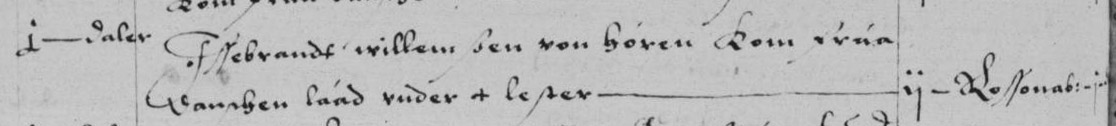 j — daler Issebrandt willem sen von Horen kom frua
danschen laad vnder + lester — ij – Rossonab: